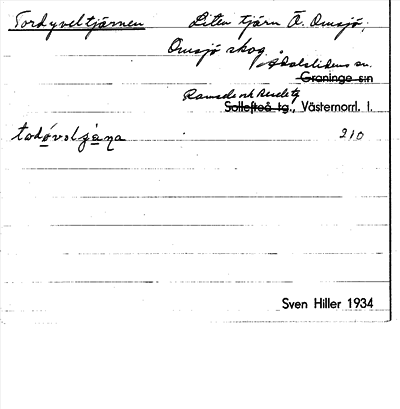 Tordyveltjärnen Liten tjärn Ö. Omsjö,
Omsjö skog
Ådalslidens sn.
Graninge s:n
Ramsele och Resele tg
Sollefteå tg., Västernorrl. l.
210
Sven Hiller 1934